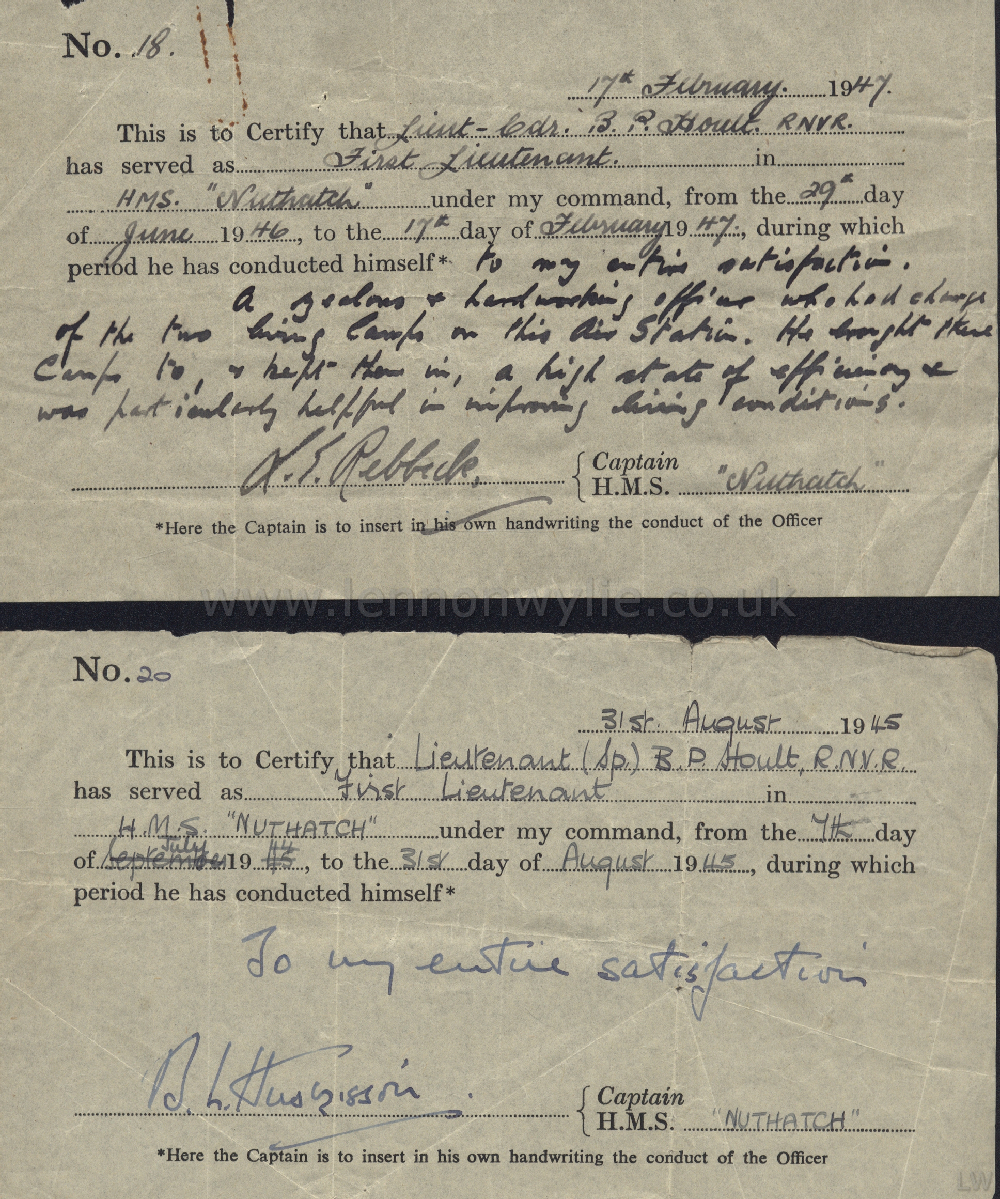 No. 18.
17th February. 1947.
This is to Certify that Lieut-Cdr. B. P. Hoult. RNVR.
has served as First Lieutenant. in
HMS. "Nuthatch" under my command, from the 29th day
of June 1946, to the 17th day of February 1947, during which
period he has conducted himself* to my entire satisfaction.
A zealous & hardworking officer who had charge
of the two living Camps on this Air Station. He brought these
Camps to, & kept them in, a high state of efficiency &
was particularly helpful in improving living conditions.
L.E. Rebbeck. Captain
H.M.S. "Nuthatch"
*Here the Captain is to insert in his own handwriting the conduct of the Officer
www.lennonwylie.co.uk
No. 20
31st. August 1945
This is to Certify that Lieutenant (Sp.) B.P. Hoult, R.N.V.R.
has served as First Lieutenant in
H.M.S. "NUTHATCH" under my command, from the 7th day
July 44
of September 1945, to the 31st day of August 1945, during which
period he has conducted himself*
To my entire satisfaction
B. L. Huskisson. Captain
H.M.S. "NUTHATCH"
*Here the Captain is to insert in his own handwriting the conduct of the Officer
LW